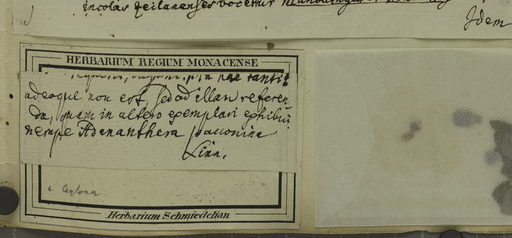 incolas Zeilanenses vocetur
Idem
HERBARIUM REGIUM MONACENSE
adeoque non est, sed ad illam referen
da, quam in altero exemplari exhibui
nempe Adenanthera pavonina
Linn.
e Ceylona
Herbarium Schmiedelian